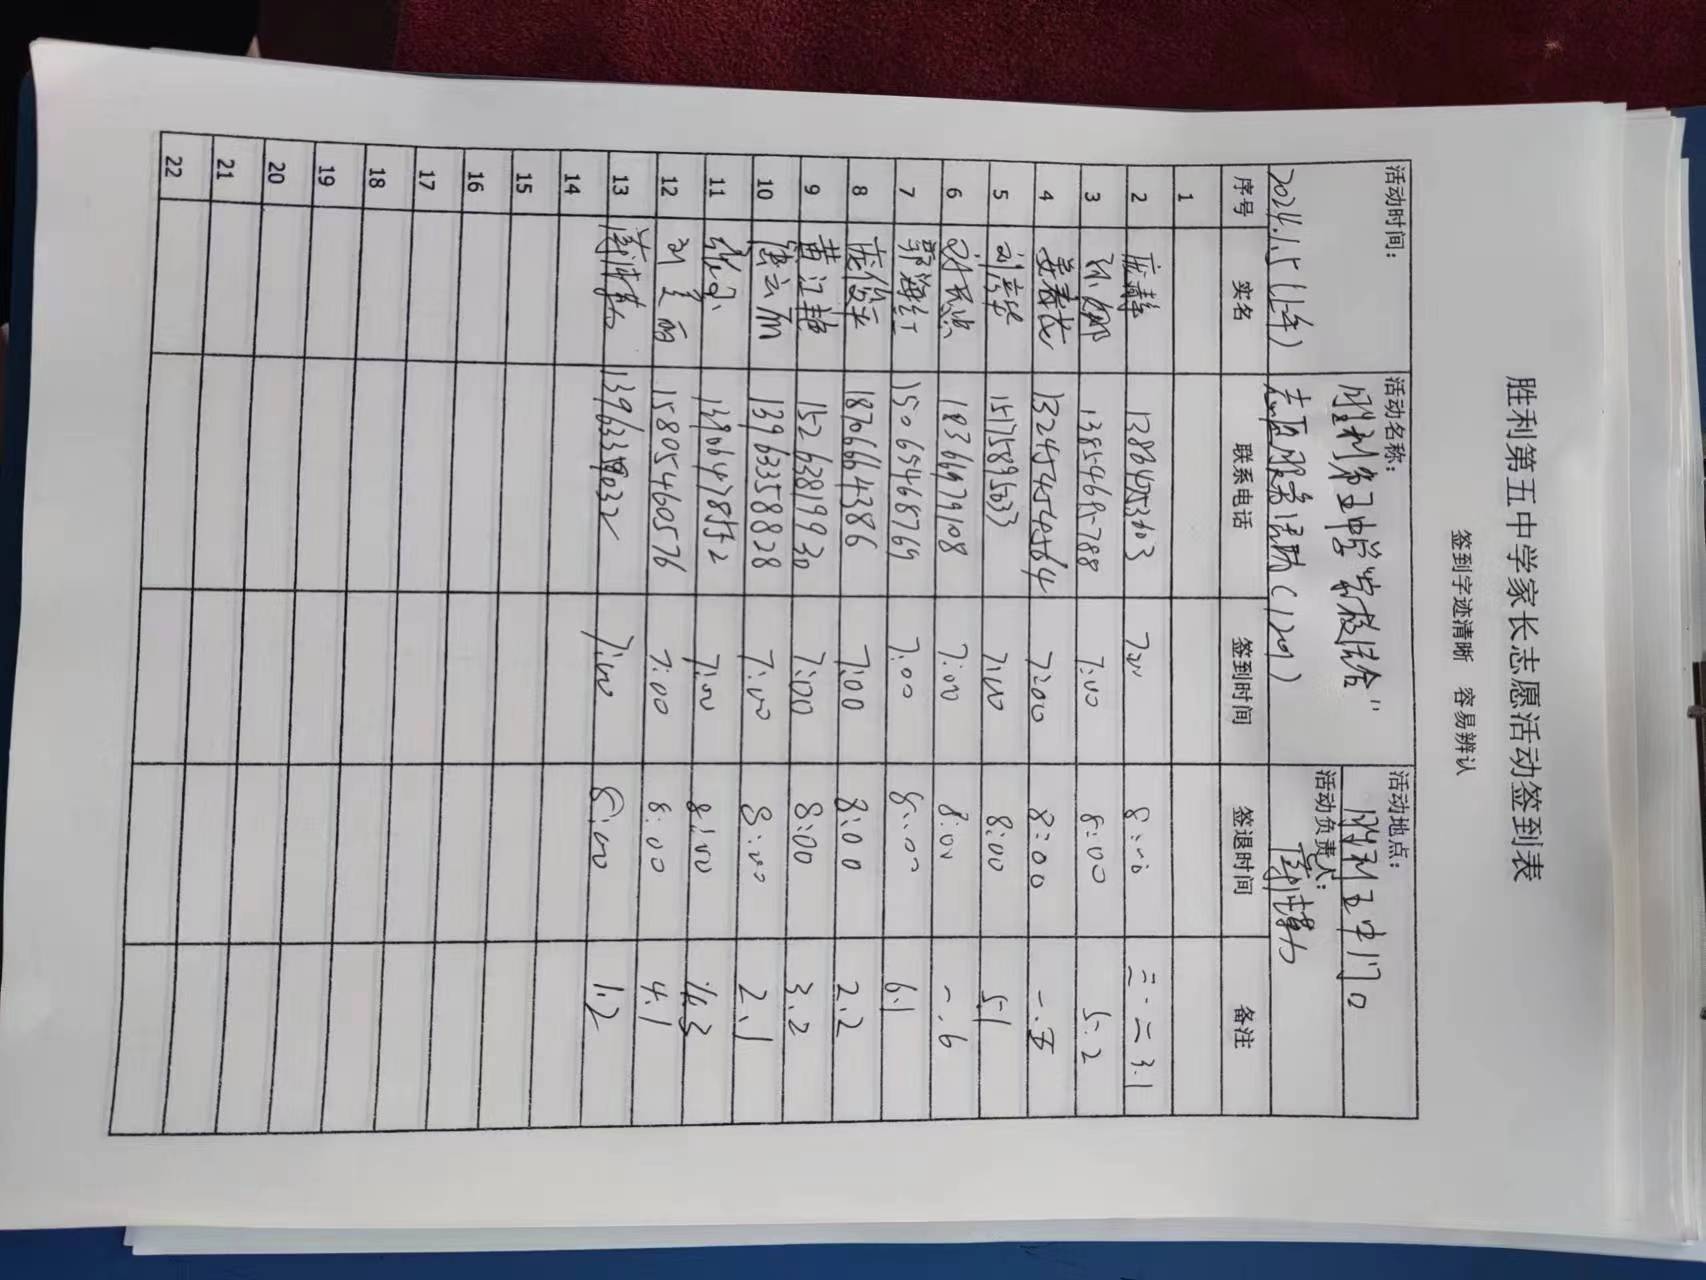 胜利第五中学家长志愿活动签到表
签到字迹清晰 容易辨认
活动时间: 活动名称: 活动地点:
胜利第五中学"家校结合" 胜利五中门口
2024.1.5(上午) 志愿服务活动(1209) 活动负责人:
序号 实名 联系电话 签到时间 签退时间 备注
1
2 庞静 13864753603 8:00 三.二 3.1
3 孙娜 13854695788 7:00 8:00 5.2
4 姜春花 13245454564 7:00 8:00
5 15175895033 7:00 8:00 5.1
6 18366679108 7:00 8:00 一.6
7 郭海红 15065468769 7:00 8:00 6.1
8 庞俊平 18706664386 7:00 8:00 2.2
9 黄江艳 15263819930 7:00 8:00 3.2
10 13963358828 7:00 8:00 2.1
11 7:00 8:00
12 刘美丽 15805460576 7:00 8:00 4.1
13 7:00 8:00 1.2
14
15
16
17
18
19
20
21
22